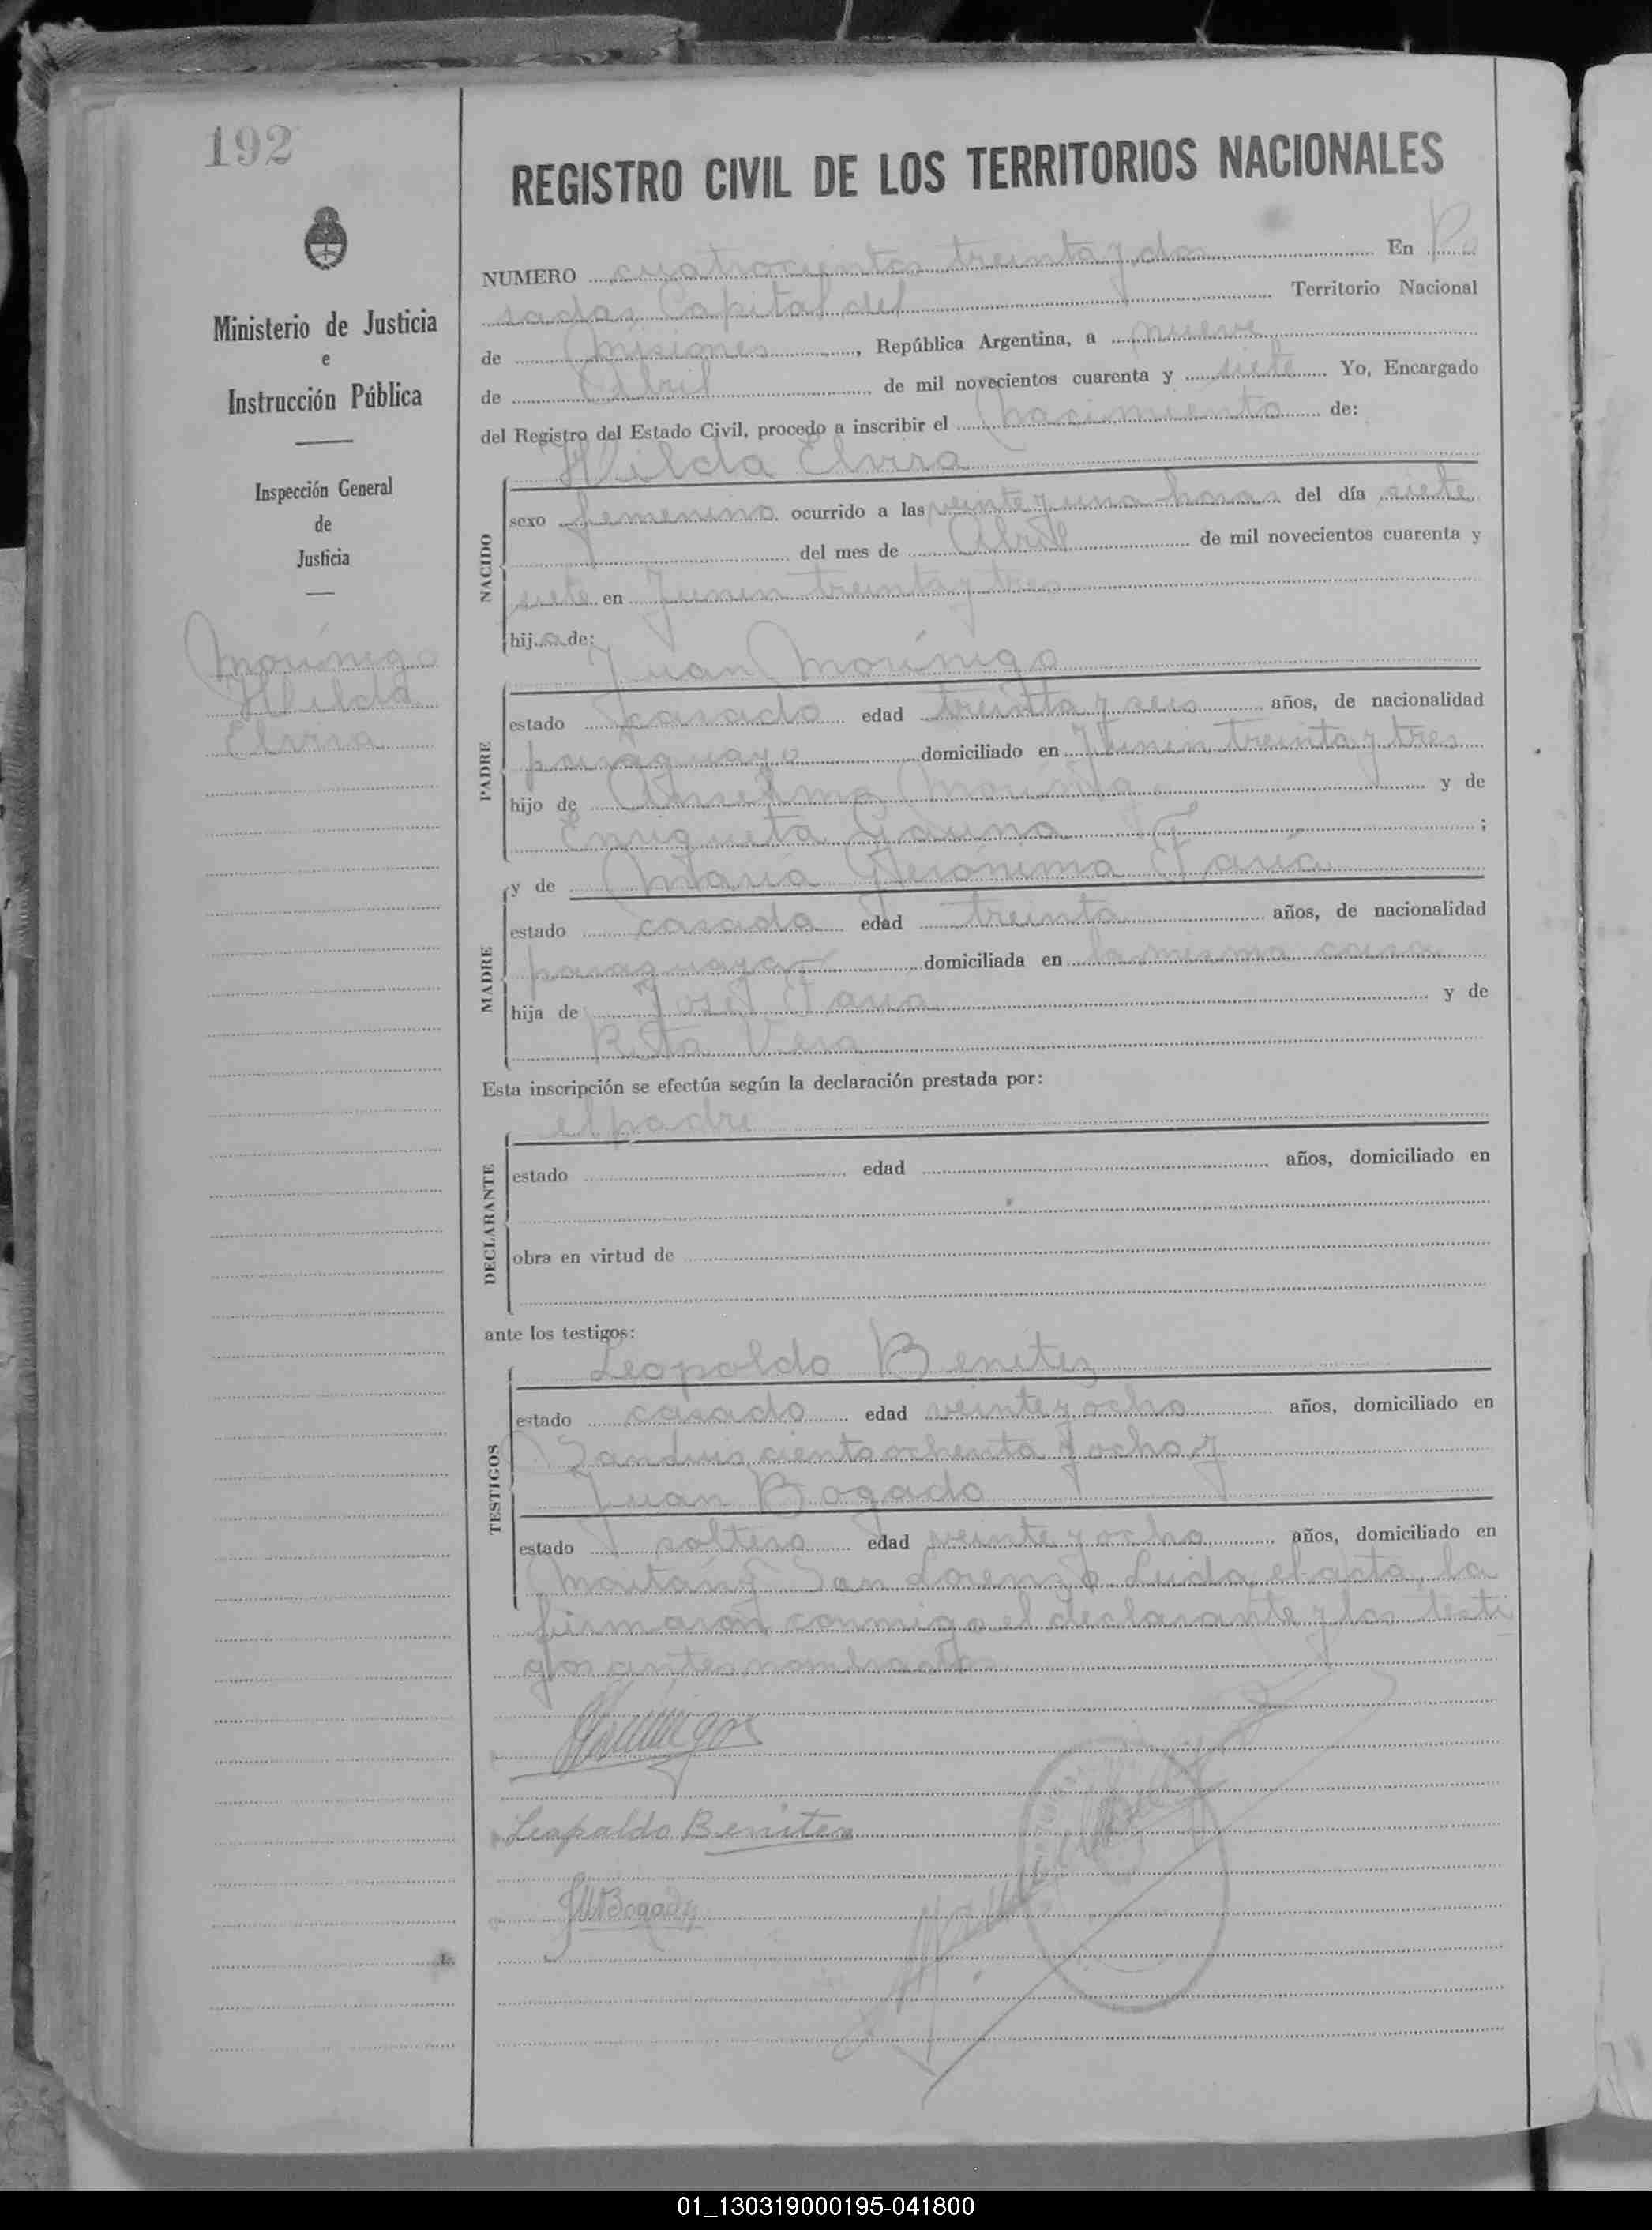 192
REGISTRO CIVIL DE LOS TERRITORIOS NACIONALES
Ministerio de Justicia
e
Instrucción Pública
Inspección General
de
Justicia
Morínigo
Hilda
Elvira
NUMERO cuatrocientos treinta y dos En Po
sadas Capital del Territorio Nacional
de Misiones, República Argentina, a nueve
de Abril, de mil novecientos cuarenta y siete Yo, Encargado
del Registro del Estado Civil, procedo a inscribir el nacimiento de:
Hilda Elvira
NACIDO
sexo femenino ocurrido a las veinte y una horas del día siete
del mes de Abril de mil novecientos cuarenta y
siete en Junin treinta y tres
hija de:
Juan Morínigo
PADRE
estado casado edad treinta y seis años, de nacionalidad
paraguayo domiciliado en Junin treinta y tres
hijo de Anselmo Morínigo y de
Enriqueta Gauna ;
y de María Gerónima Faria
MADRE
estado casada edad treinta años, de nacionalidad
paraguaya domiciliada en la misma casa
hija de José Faria y de
Rita Vera
Esta inscripción se efectúa según la declaración prestada por:
el padre
DECLARANTE
estado edad años, domiciliado en
obra en virtud de
ante los testigos:
TESTIGOS
Leopoldo Benitez
estado casado edad veinte y ocho años, domiciliado en
San Luis ciento ochenta y ocho y
Juan Bogado
estado soltero edad veinte y ocho años, domiciliado en
Maitan y San Lorenzo. Leida el acta, la
firmaron conmigo el declarante y los testi
gos antes nombrados
Leopoldo Benitez
JMBogado
01_130319000195-041800